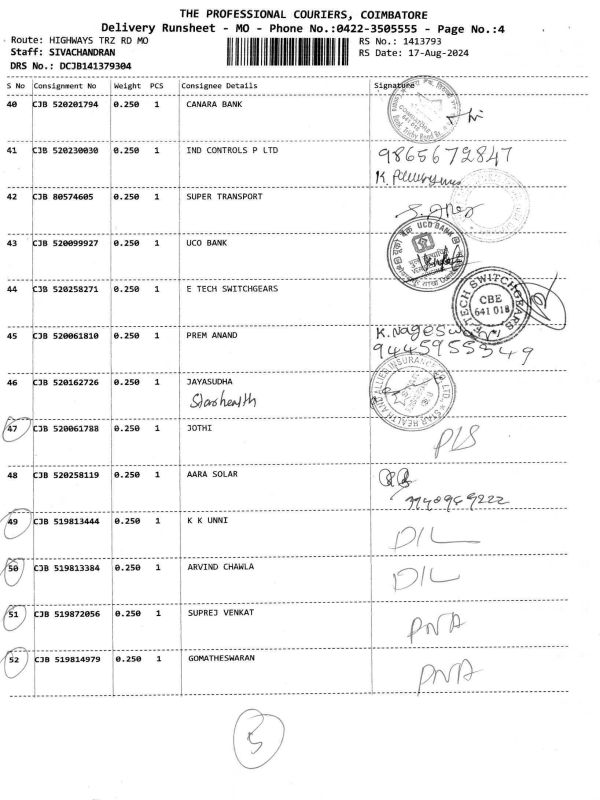 THE PROFESSIONAL COURIERS, COIMBATORE
Delivery Runsheet - MO - Phone No.:0422-3505555 - Page No.:4
Route: HIGHWAYS TRZ RD MO RS No.: 1413793
Staff: SIVACHANDRAN RS Date: 17-Aug-2024
DRS No.: DCJB141379304
S No Consignment No Weight PCS Consignee Details Signature
40 CJB 520201794 0.250 1 CANARA BANK
41 CJB 520230030 0.250 1 IND CONTROLS P LTD 9865672847
K.
42 CJB 80574605 0.250 1 SUPER TRANSPORT
43 CJB 520099927 0.250 1 UCO BANK UCO BANK
44 CJB 520258271 0.250 1 E TECH SWITCHGEARS TECH SWITCHGEARS
CBE
641 018
45 CJB 520061810 0.250 1 PREM ANAND K. Nageswari
9445955349
46 CJB 520162726 0.250 1 JAYASUDHA STAR HEALTH AND ALLIED INSURANCE CO. LTD.
Star health
47 CJB 520061788 0.250 1 JOTHI PLS
48 CJB 520258119 0.250 1 AARA SOLAR
49 CJB 519813444 0.250 1 K K UNNI DIL
50 CJB 519813384 0.250 1 ARVIND CHAWLA DIL
51 CJB 519872056 0.250 1 SUPREJ VENKAT PNA
52 CJB 519814979 0.250 1 GOMATHESWARAN PNA
5